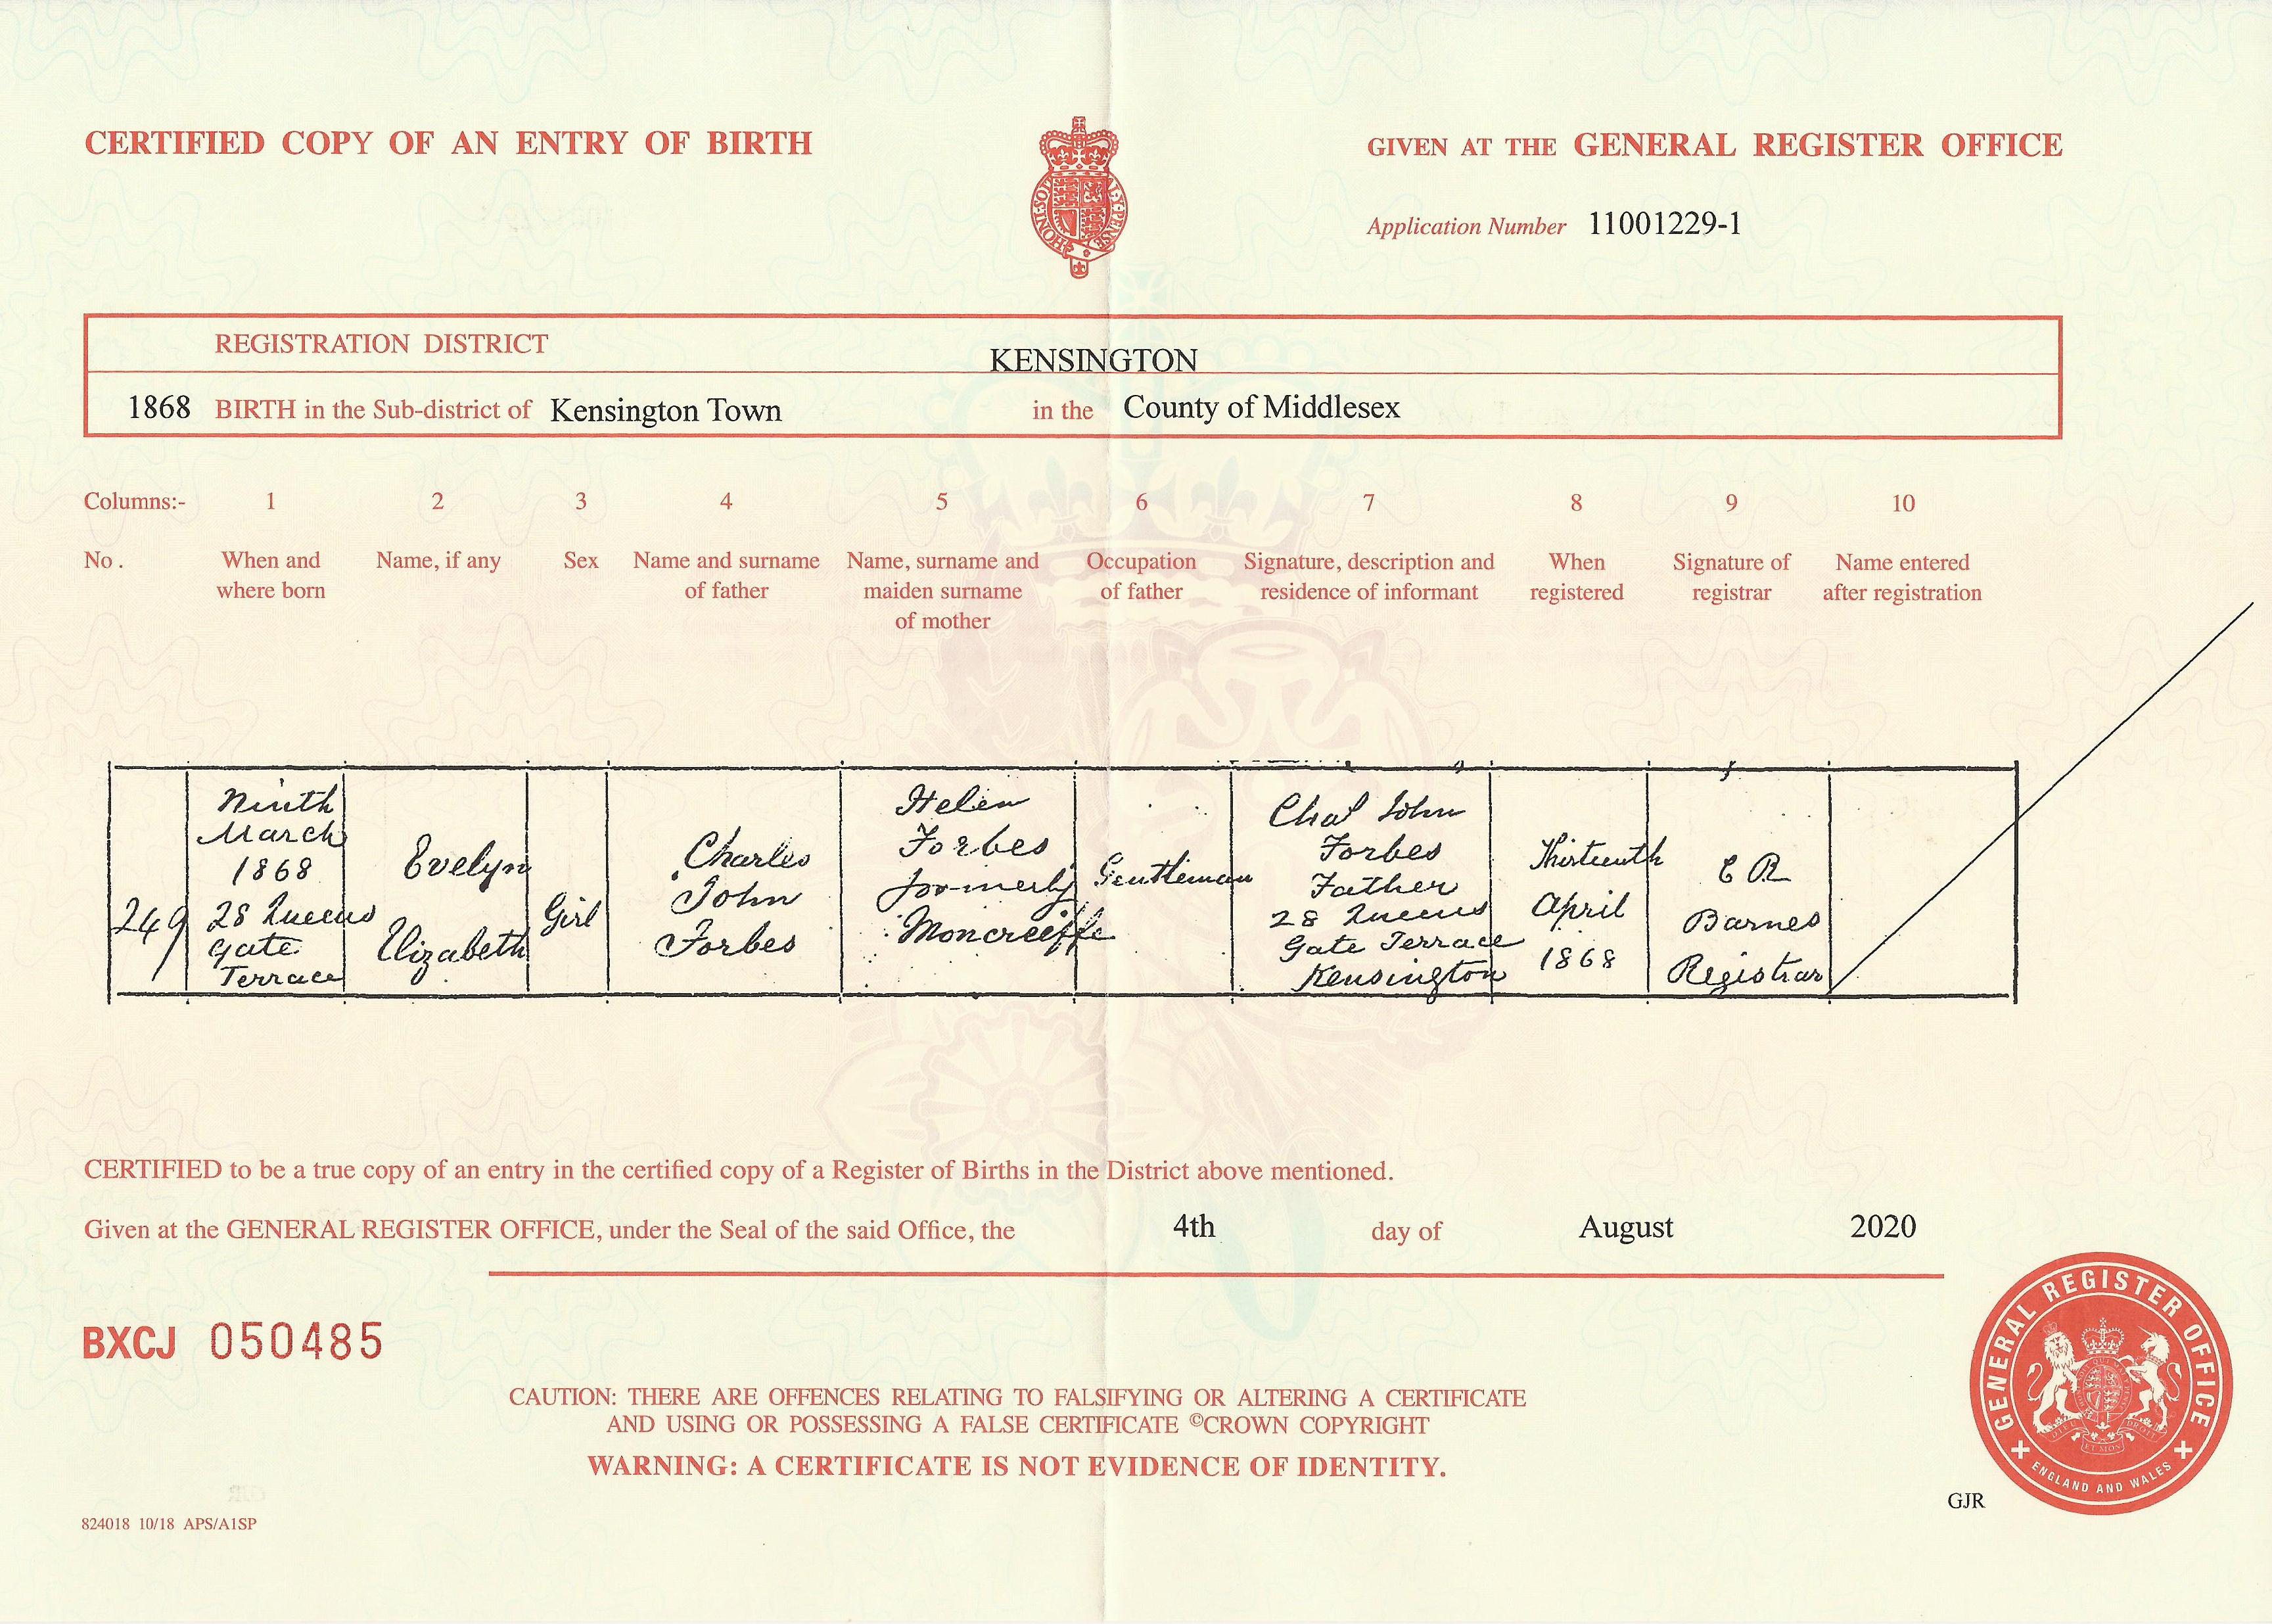 CERTIFIED COPY OF AN ENTRY OF BIRTH
GIVEN AT THE GENERAL REGISTER OFFICE
HONI·SOIT
AL·Y·PENSE
Application Number 11001229-1
REGISTRATION DISTRICT KENSINGTON
1868 BIRTH in the Sub-district of Kensington Town in the County of Middlesex
Columns:- 1 2 3 4 5 6 7 8 9 10
No. When and where born
Name, if any
Sex
Name and surname of father
Name, surname and maiden surname of mother
Occupation of father
Signature, description and residence of informant
When registered
Signature of registrar
Name entered after registration
249
Ninth
March
1868
28 Queens
Gate
Terrace
Evelyn
Elizabeth
Girl
Charles
John
Forbes
Helen
Forbes
formerly
Moncreiffe
Gentleman
Chas John
Forbes
Father
28 Queens
Gate Terrace
Kensington
Thirteenth
April
1868
C R
Barnes
Registrar
CERTIFIED to be a true copy of an entry in the certified copy of a Register of Births in the District above mentioned.
Given at the GENERAL REGISTER OFFICE, under the Seal of the said Office, the 4th day of August 2020
BXCJ 050485
CAUTION: THERE ARE OFFENCES RELATING TO FALSIFYING OR ALTERING A CERTIFICATE
AND USING OR POSSESSING A FALSE CERTIFICATE ©CROWN COPYRIGHT
WARNING: A CERTIFICATE IS NOT EVIDENCE OF IDENTITY.
GENERAL REGISTER OFFICE
ENGLAND AND WALES
GJR
824018 10/18 APS/A1SP